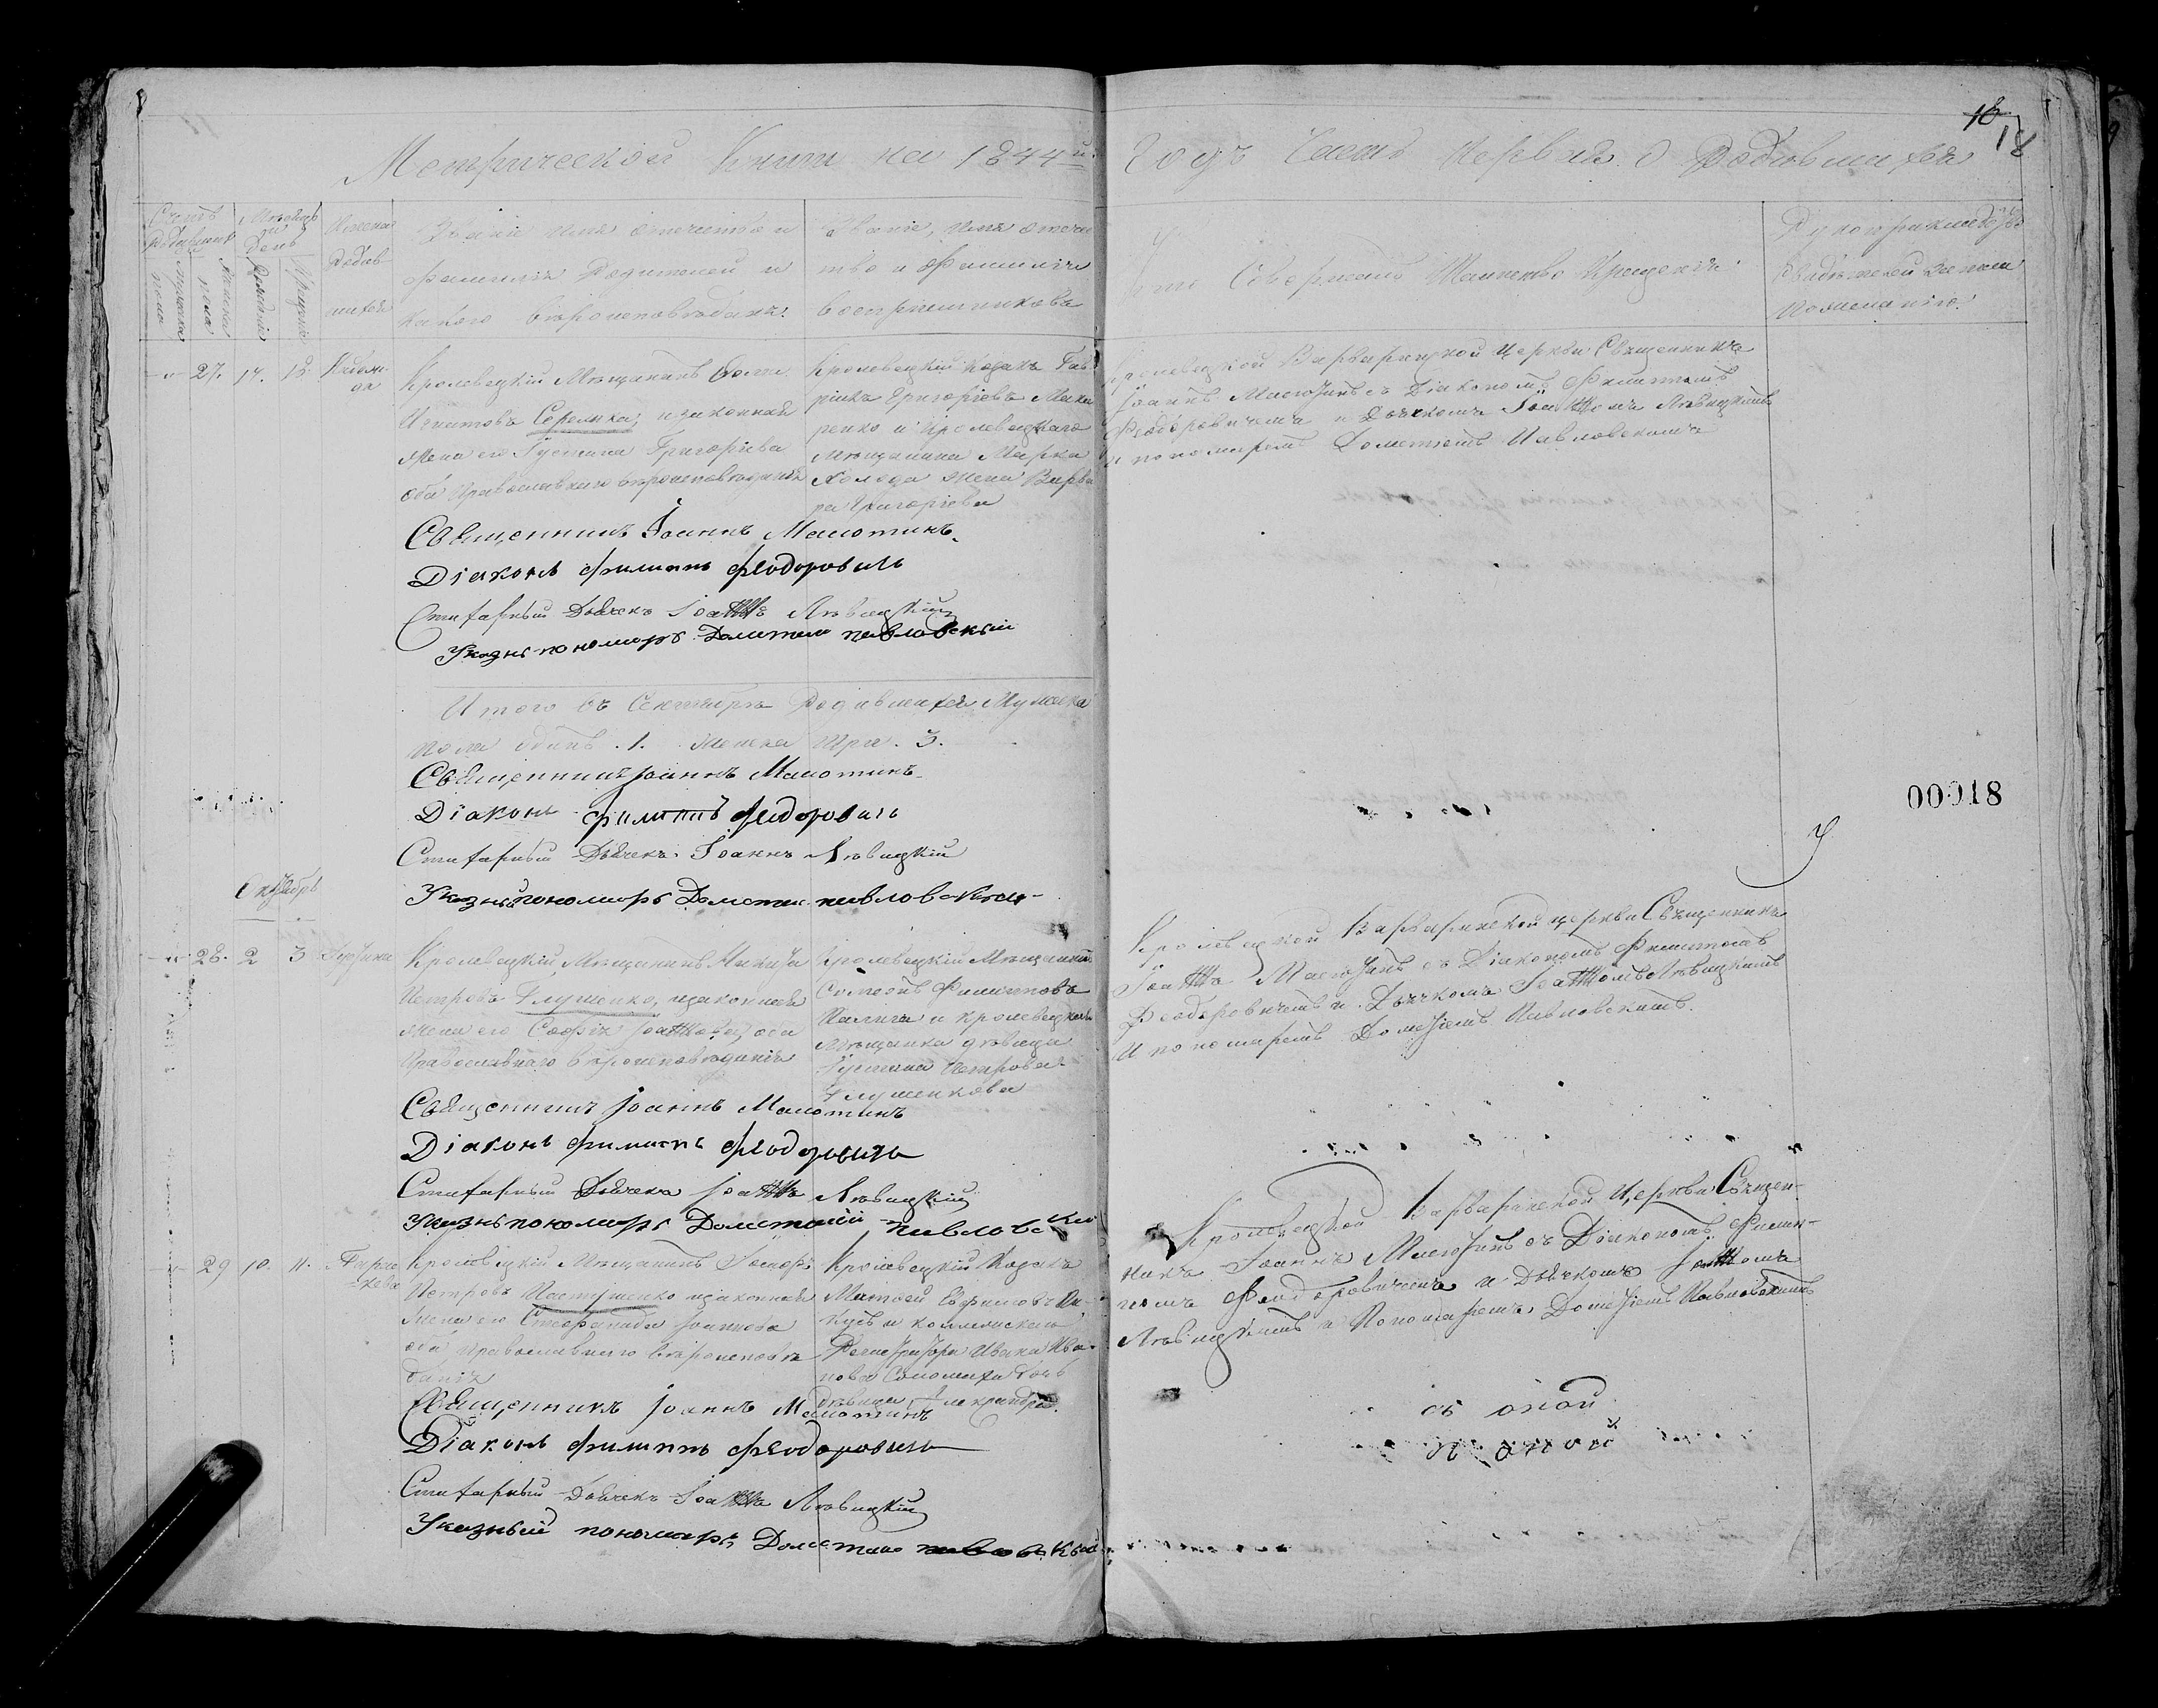 Метрической Книги на 1844й.
Годъ Часть Первая. О Родившихся
16
18
Счетъ Родившихся
Мужеска пола
Женска пола
Мѣсяцъ и День
Рожденія
Крещенія
Имена Родив-
шихся
Званіе имя отечество и
фамилія Родителей и
какого вѣроисповѣданія.
Званіе, имя отече
ство и фамилія
воспріемниковъ
Кто совершалъ Таинство Крещенія
Рукоприкладство
Свидѣтелей записи
по желанію.
27. 17. 18.
Кролевецкій Мѣщанинъ Фома
Игнатовъ Середика, и законная
жена его Іустина Григорьева
оба Православнаго вѣроисповѣданія
Кролевецкій Козакъ Гав
ріилъ Григоріевъ Мака
ренко и Кролевецкаго
мѣщанина Марка
Холода жена Варва
ра Григоріева
Кролевецкой Варваринской Церкви Священникъ
Іоаннъ Масютинъ съ Діакономъ Филиппомъ
Феодоровичемъ и Дьячкомъ Іоанномъ Лѣвицкимъ
и пономаремъ Дометіемъ Павловскимъ
Священникъ Іоаннъ Масютинъ.
Діаконъ Филиппъ Феодоровичь
Стихарный Дьячекъ Іоаннъ Лѣвицкій
Указный пономарь Дометий Павловский
Итого въ Сентябрѣ Родившихся Мужеска
пола одинъ .1. женска три. 3.
Священникъ Іоаннъ Масютинъ.
Діаконъ Филиппъ Феодоровичь
Стихарный Дьячекъ Іоаннъ Лѣвицкій
Указный пономарь Дометий Павловский
00018
Октябрь
28. 2 3
Кролевецкій Мѣщанинъ Никита
Петровъ Глушенко, и законная
жена его Софія Іоаннова, оба
Православнаго вѣроисповѣданія
Кролевецкій Мѣщанинъ
Симеонъ Филипповъ
Калига и кролевецкая
мѣщанка дѣвица
Іустина Петрова
Глушенкова
Кролевецкой Варваринской церкви Священникъ
Іоаннъ Масютинъ съ Діакономъ Филиппомъ
Феодоровичемъ и Дьячкомъ Іоанномъ Лѣвицкимъ
И пономаремъ Дометіемъ Павловскимъ.
Священникъ Іоаннъ Масютинъ
Діаконъ Филиппъ Феодоровичь
Стихарный Дьячекъ Іоаннъ Лѣвицкій
Указный пономарь Дометиий Павловский
29 10. 11. Параскева
Кролевецкій Мѣщанинъ
Петровъ Пастушенко и законная
жена его Стефанида Іоаннова
оба православнаго вѣроисповѣ
данія
Кролевецкій Козакъ
Матвей Евфимовъ
и коллежскаго
Регистратора Ивана Ива-
нова Соломахи дочь
дѣвица Александра.
Кролевецкой Варваринской Церкви Священ-
никъ Іоаннъ Масютинъ съ Діакономъ Филип-
помъ Феодоровичемъ и Дьячкомъ Іоанномъ
Лѣвицкимъ и Пономаремъ Дометіемъ Павловскимъ
Священникъ Іоаннъ Масютинъ
Діаконъ Филиппъ Феодоровичь
Стихарный Дьячекъ Іоаннъ Лѣвицкій
Указный пономарь Дометий Павловский